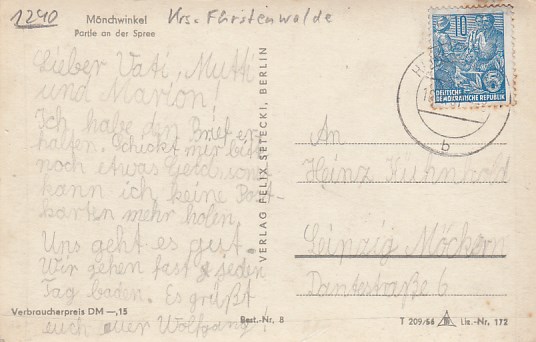 1240
Mönchwinkel
Partie an der Spree
Krs. Fürstenwalde
Lieber Vati, Mutti
und Marion!
Ich habe den Brief er-
halten. Schickt mir bitte
noch etwas Geld sonst
kann ich keine Post-
karten mehr holen.
Uns geht es gut.
Wir gehen fast jeden
Tag baden. Es grüßt
euch euer Wolfgang!
Verbraucherpreis DM —,15
Best.-Nr. 8
VERLAG FELIX SETECKI, BERLIN
10
5
DEUTSCHE
DEMOKRATISCHE REPUBLIK
b
An
Heinz Kuhnwald
Leipzig Möckern
Dantestraße 6
T 209/56
Liz.-Nr. 172